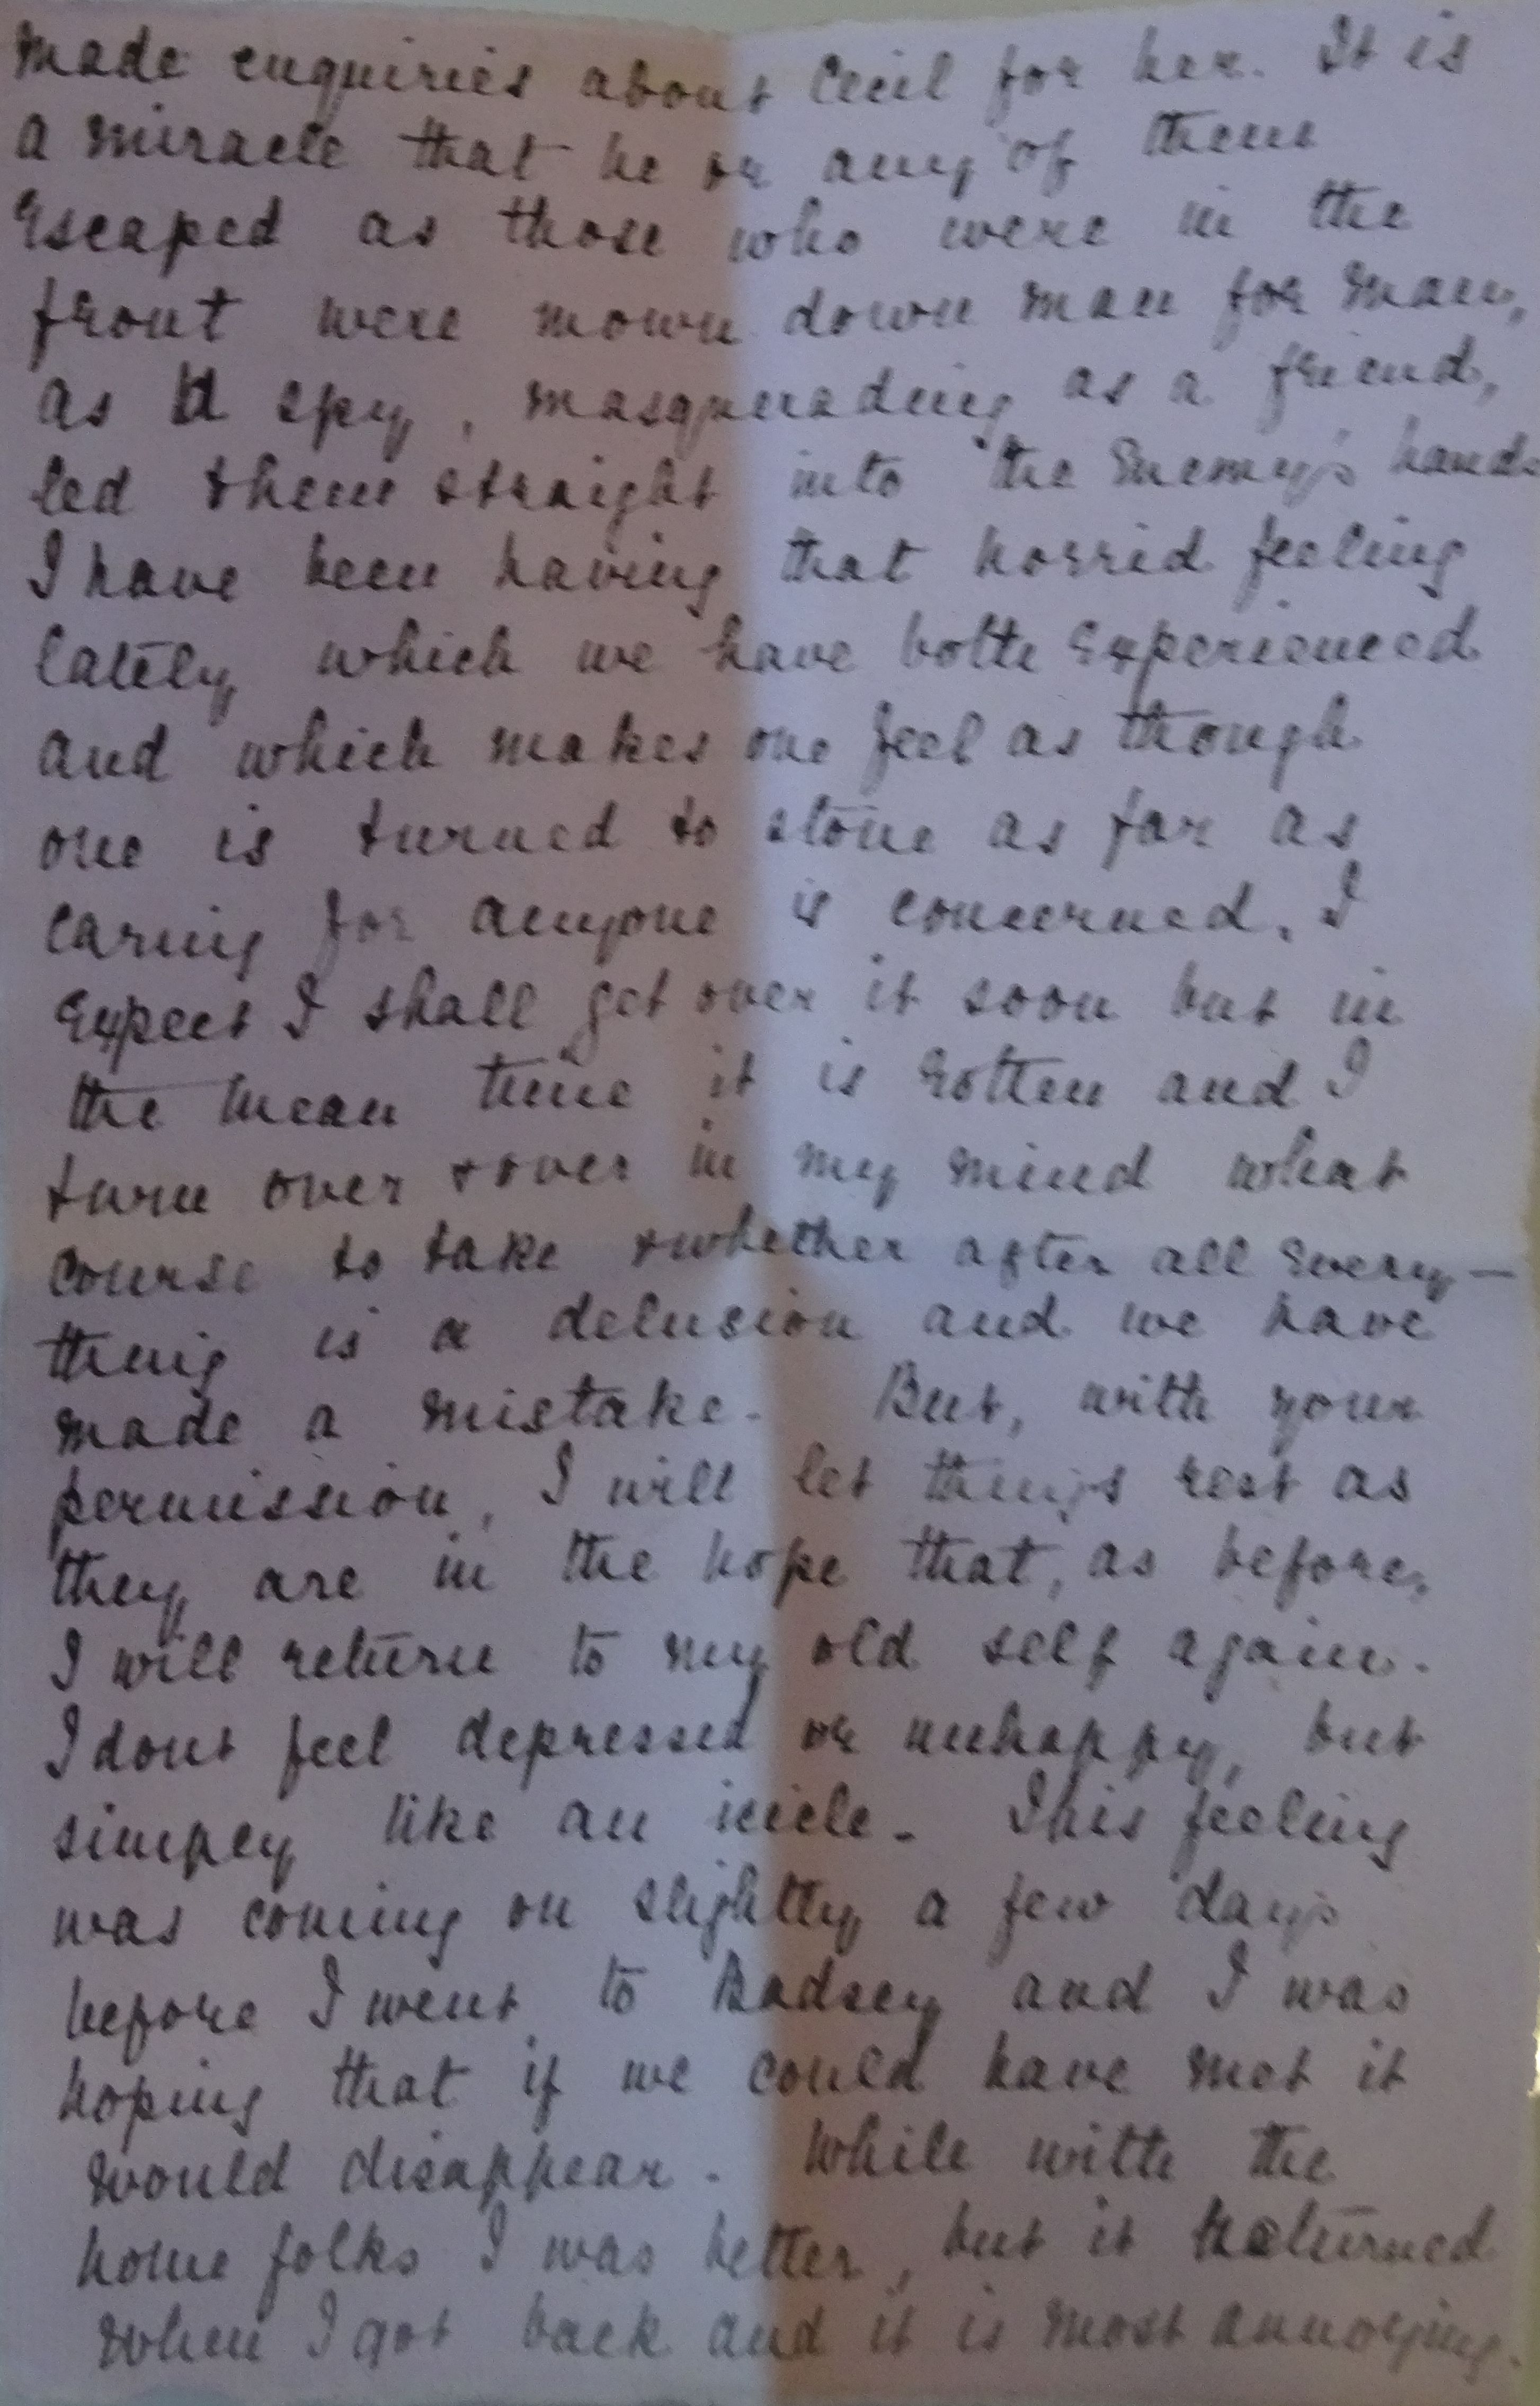 made enquiries about Cecil for her. It is
a miracle that he or any of them
escaped as those who were in the
front were mown down man for man,
as a spy, masquerading as a friend,
led them straight into the Enemy's hands
I have been having that horrid feeling
lately which we have both experienced
and which makes one feel as though
one is turned to stone as far as
caring for anyone is concerned. I
expect I shall get over it soon but in
the mean time it is rotten and I
turn over & over in my mind what
course to take & whether after all every-
thing is a delusion and we have
made a mistake. But, with your
permission, I will let things rest as
they are in the hope that, as before,
I will return to my old self again.
I dont feel depressed or unhappy, but
simply like an icicle. This feeling
was coming on slightly a few days
before I went to Badsey and I was
hoping that if we could have met it
would disappear. While with the
home folks I was better, but it returned
when I got back and it is most annoying.